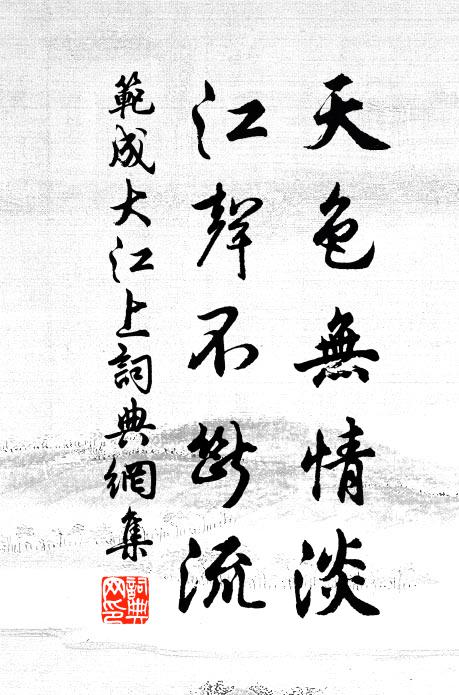 天色無情淡
江聲不斷流
範成大江上詞典網集
詞典網印